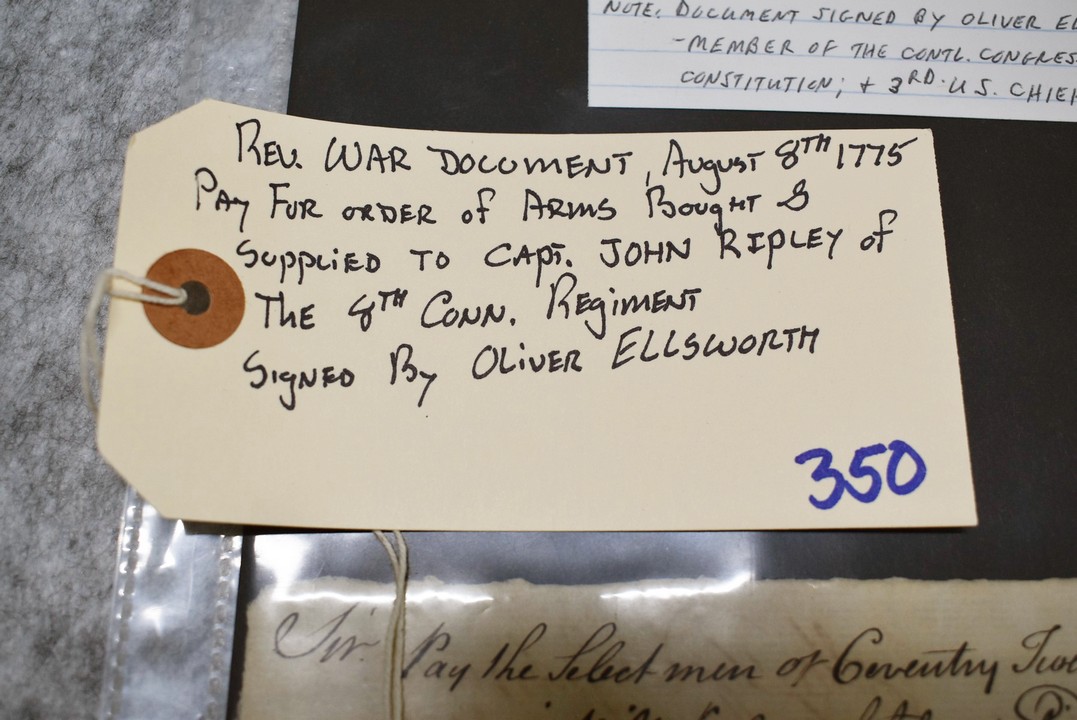 NOTE: DOCUMENT SIGNED BY OLIVER
-MEMBER OF THE CONTL. CONGRES
CONSTITUTION; + 3RD. U.S. CHIEF
REV. WAR DOCUMENT, August 8TH 1775
PAy FUR ORDER of ARMS Bought &
Supplied TO CAPT. JOHN RIPLEY of
THE 8TH CONN. REgimENT
SigNED By OLiVER ELLSWORTH
350
Sir. Pay the Select men of Coventry